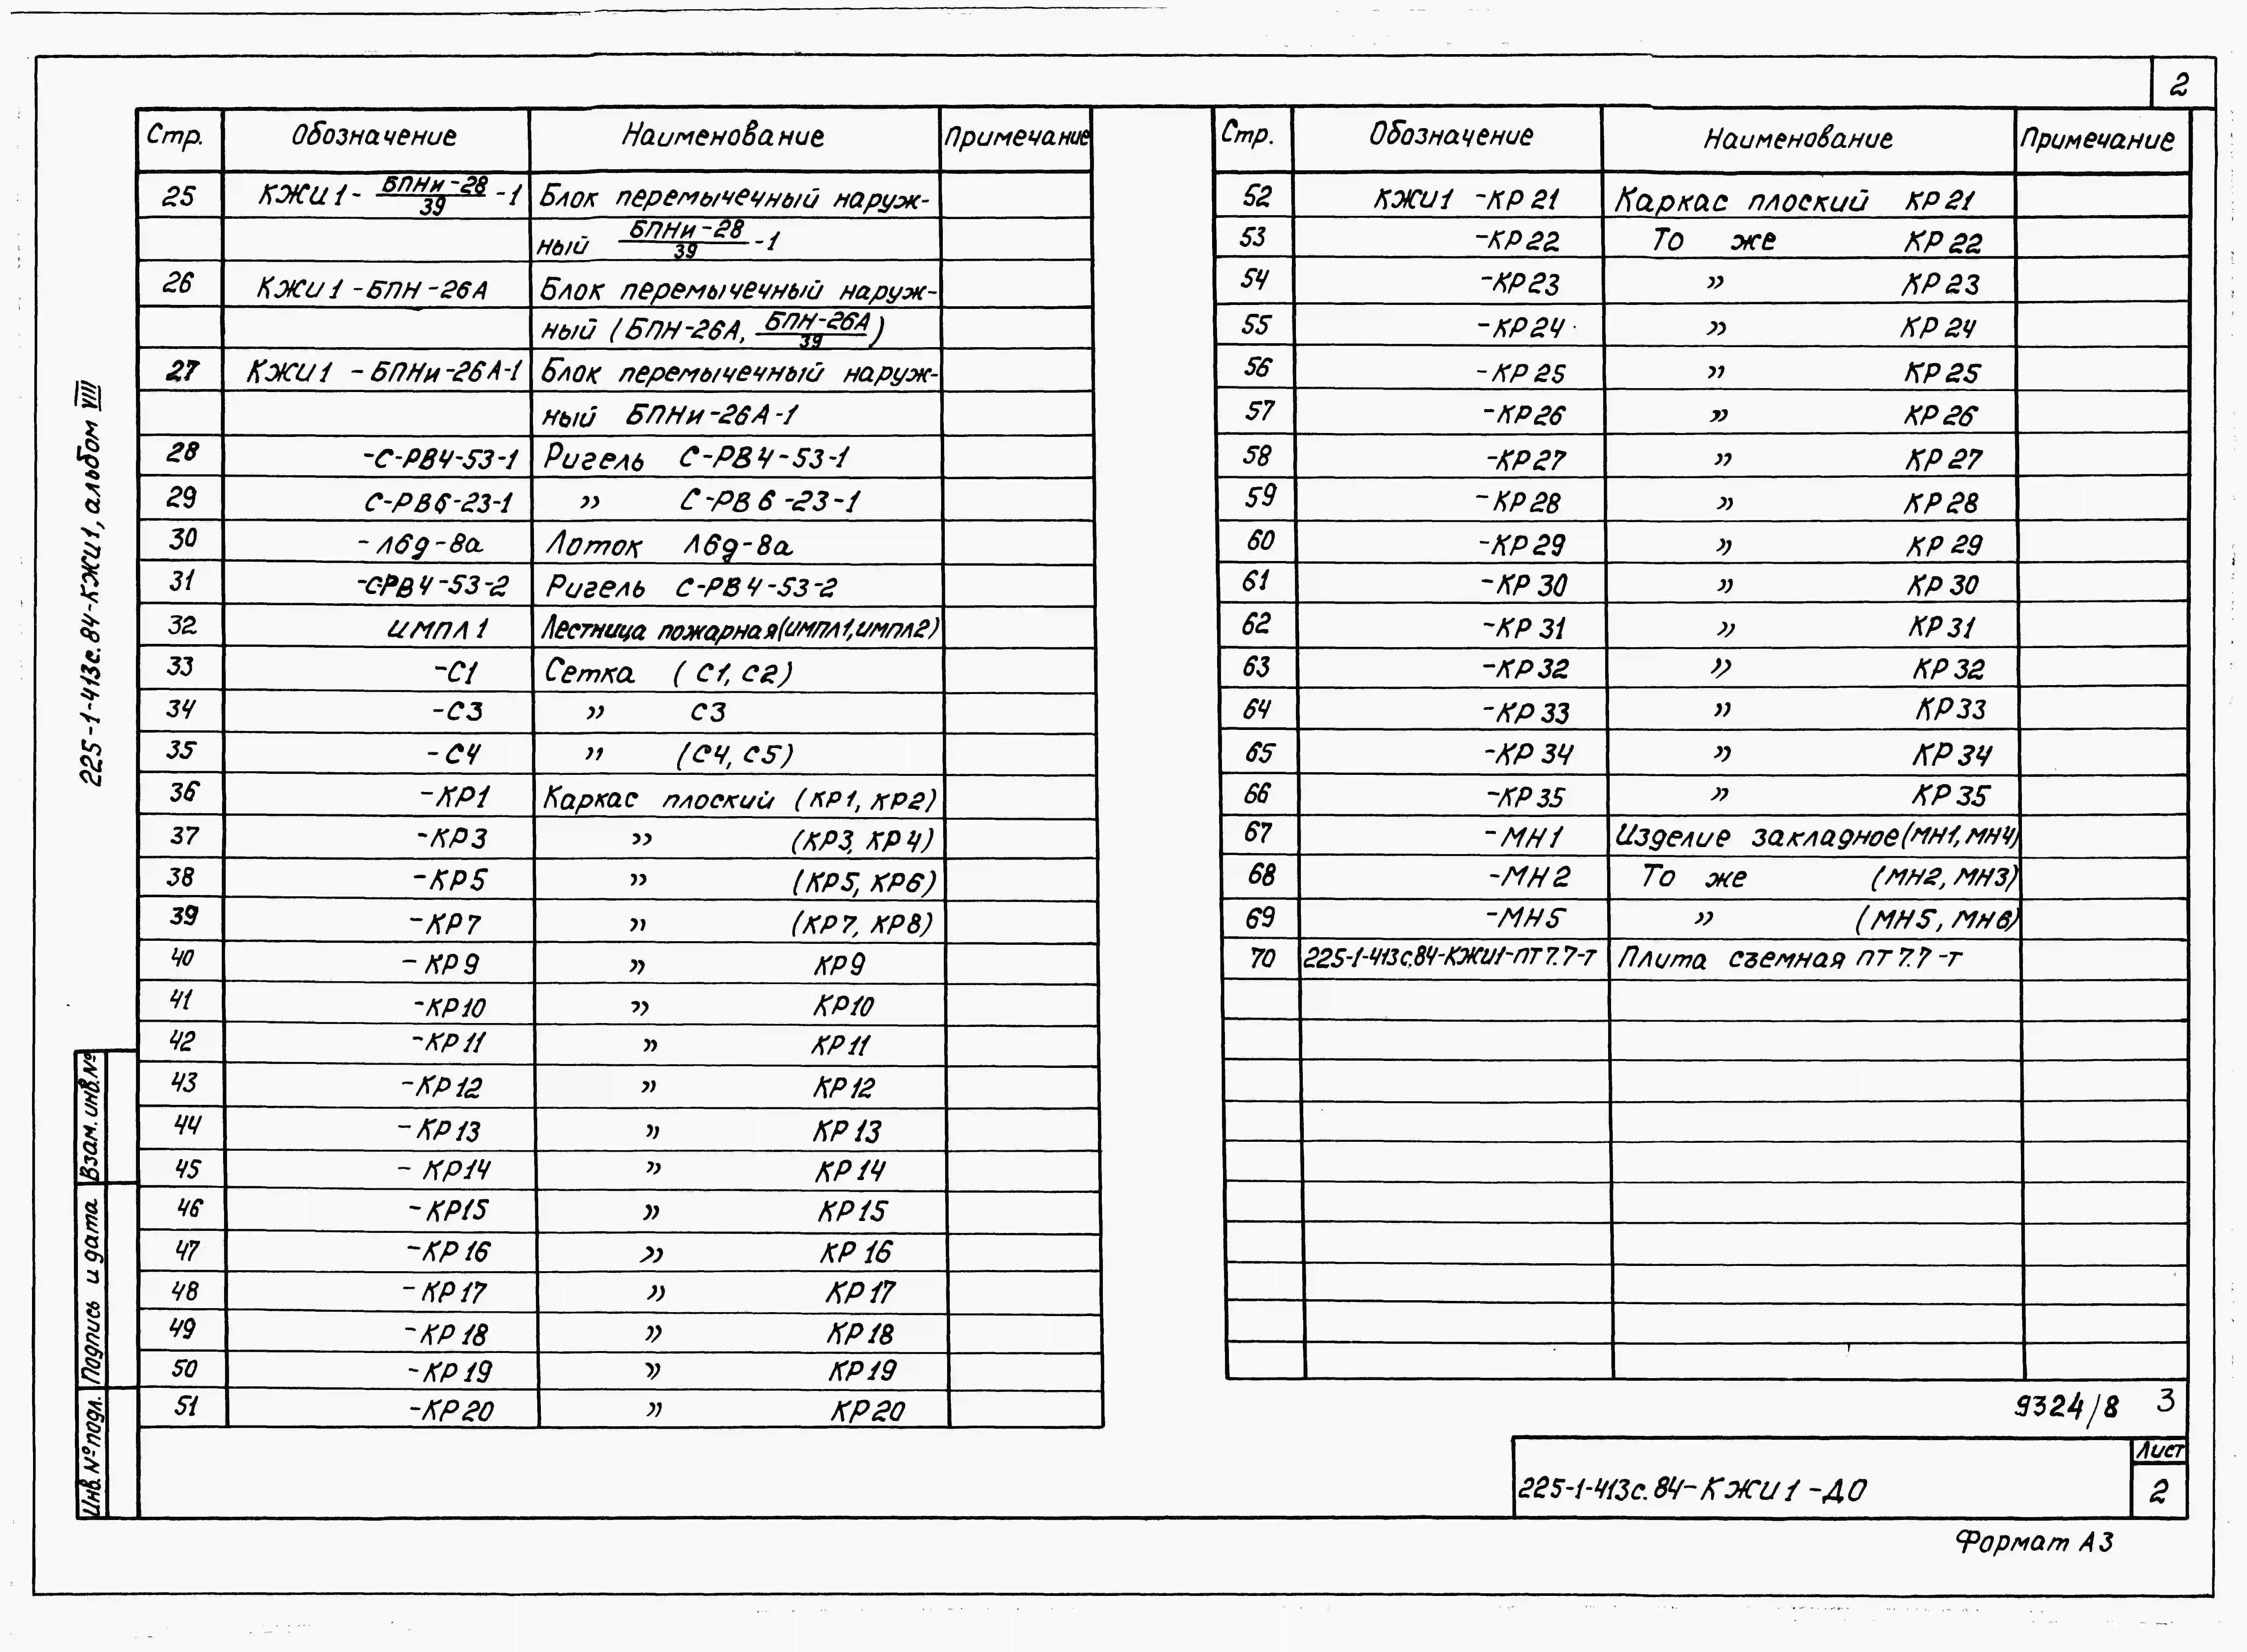 2
Стр. Обозначение Наименование Примечание
25 КЖИ1-БПНи-28/39-1 Блок перемычечный наруж-
ный БПНи-28/39-1
26 КЖИ1-БПН-26А Блок перемычечный наруж-
ный (БПН-26А, БПН-26А/39)
27 КЖИ1-БПНи-26А-1 Блок перемычечный наруж-
ный БПНи-26А-1
28 -С-РВ4-53-1 Ригель С-РВ4-53-1
29 С-РВ6-23-1 » С-РВ6-23-1
30 -Л6д-8а Лоток Л6д-8а
31 -С-РВ4-53-2 Ригель С-РВ4-53-2
32 ИМПЛ1 Лестница пожарная(ИМПЛ1,ИМПЛ2)
33 -С1 Сетка (С1, С2)
34 -С3 » С3
35 -С4 » (С4, С5)
36 -КР1 Каркас плоский (КР1, КР2)
37 -КР3 » (КР3, КР4)
38 -КР5 » (КР5, КР6)
39 -КР7 » (КР7, КР8)
40 -КР9 » КР9
41 -КР10 » КР10
42 -КР11 » КР11
43 -КР12 » КР12
44 -КР13 » КР13
45 -КР14 » КР14
46 -КР15 » КР15
47 -КР16 » КР16
48 -КР17 » КР17
49 -КР18 » КР18
50 -КР19 » КР19
51 -КР20 » КР20
Стр. Обозначение Наименование Примечание
52 КЖИ1-КР21 Каркас плоский КР21
53 -КР22 То же КР22
54 -КР23 » КР23
55 -КР24 » КР24
56 -КР25 » КР25
57 -КР26 » КР26
58 -КР27 » КР27
59 -КР28 » КР28
60 -КР29 » КР29
61 -КР30 » КР30
62 -КР31 » КР31
63 -КР32 » КР32
64 -КР33 » КР33
65 -КР34 » КР34
66 -КР35 » КР35
67 -МН1 Изделие закладное(МН1, МН4)
68 -МН2 То же (МН2, МН3)
69 -МН5 » (МН5, МН6)
70 225-1-413с.84-КЖИ1-ПТ7.7-т Плита съемная ПТ7.7-т
225-1-413с.84-КЖИ1, альбом VIII
Взам. инв.№
Подпись и дата
Инв.№подл.
9324/8 3
225-1-413с.84-КЖИ1-ДО
Лист
2
Формат А3